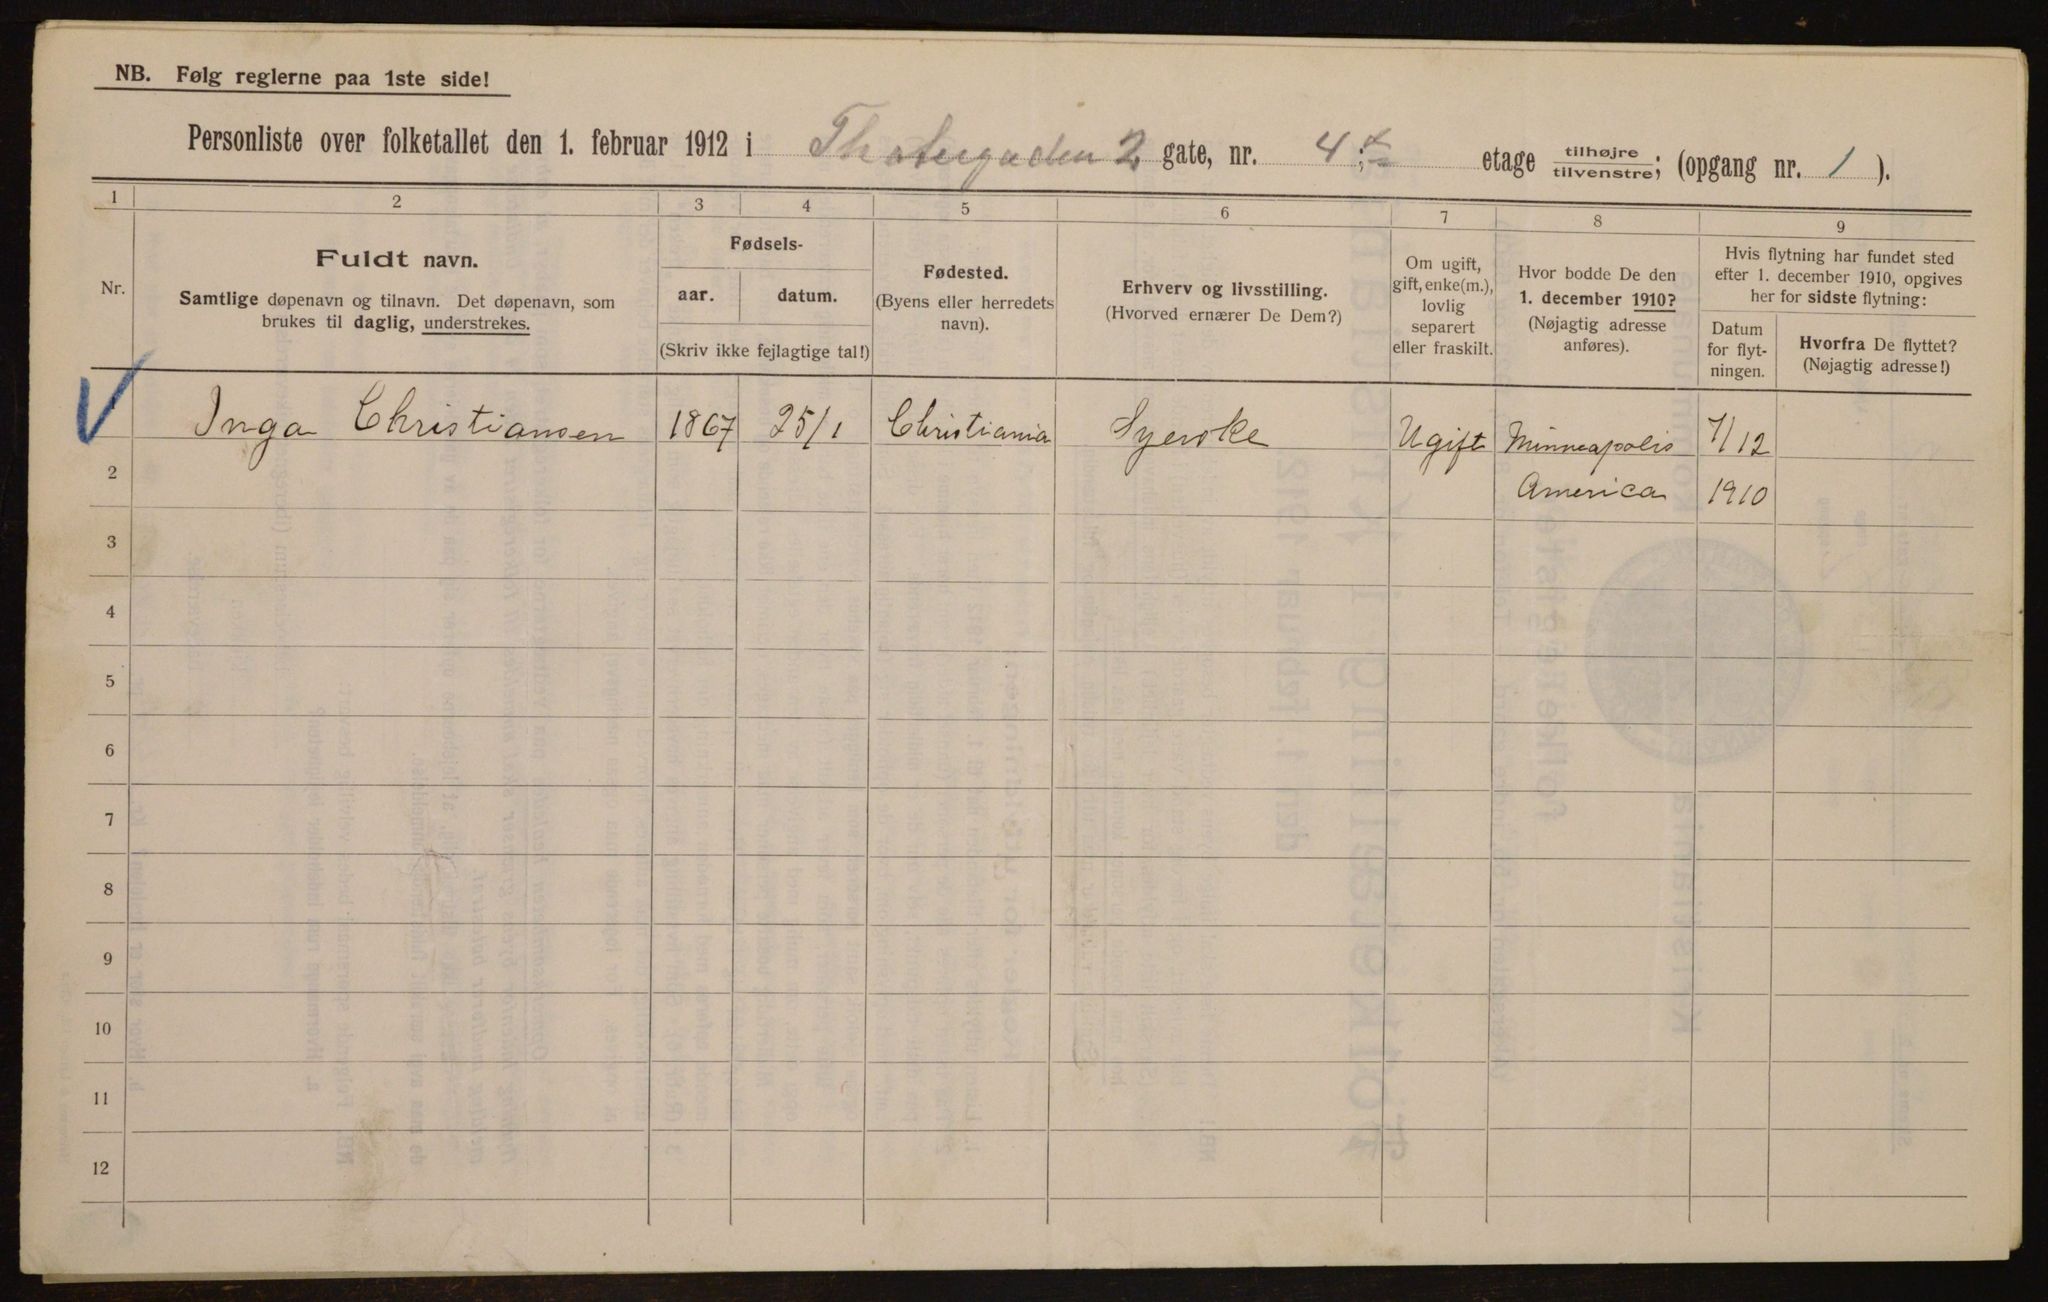 NB. Følg reglerne paa 1ste side!
Personliste over folketallet den 1. februar 1912 i Theatergaden 2 gate, nr. 4; etage tilhøjre tilvenstre; (opgang nr. 1).
1 2 3 4 5 6 7 8 9
Nr.
Fuldt navn.
Samtlige døpenavn og tilnavn. Det døpenavn, som
brukes til daglig, understrekes.
Fødsels-
aar. datum.
(Skriv ikke fejlagtige tal!)
Fødested.
(Byens eller herredets
navn).
Erhverv og livsstilling.
(Hvorved ernærer De Dem?)
Om ugift,
gift, enke(m.),
lovlig
separert
eller fraskilt.
Hvor bodde De den
1. december 1910?
(Nøjagtig adresse
anføres).
Hvis flytning har fundet sted
efter 1. december 1910, opgives
her for sidste flytning:
Datum
for flyt-
ningen.
Hvorfra De flyttet?
(Nøjagtig adresse!)
Inga Christiansen 1867 25/1 Christiania Syerske Ugift Minneapolis 7/12
2 America 1910
3
4
5
6
7
8
9
10
11
12